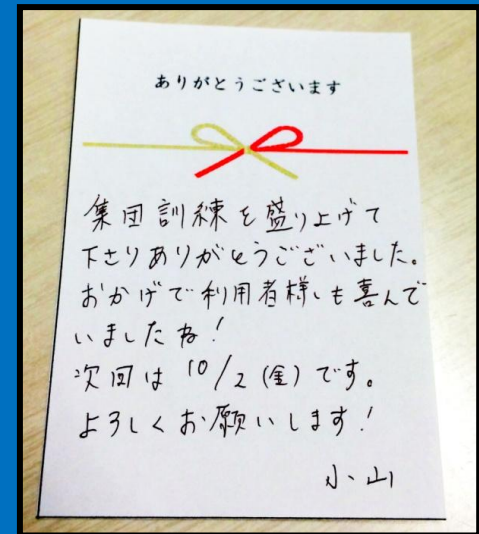 ありがとうございます
集団訓練を盛り上げて
下さりありがとうございました。
おかげで利用者様も喜んで
いましたね!
次回は 10/2 (金) です。
よろしくお願いします!
小山